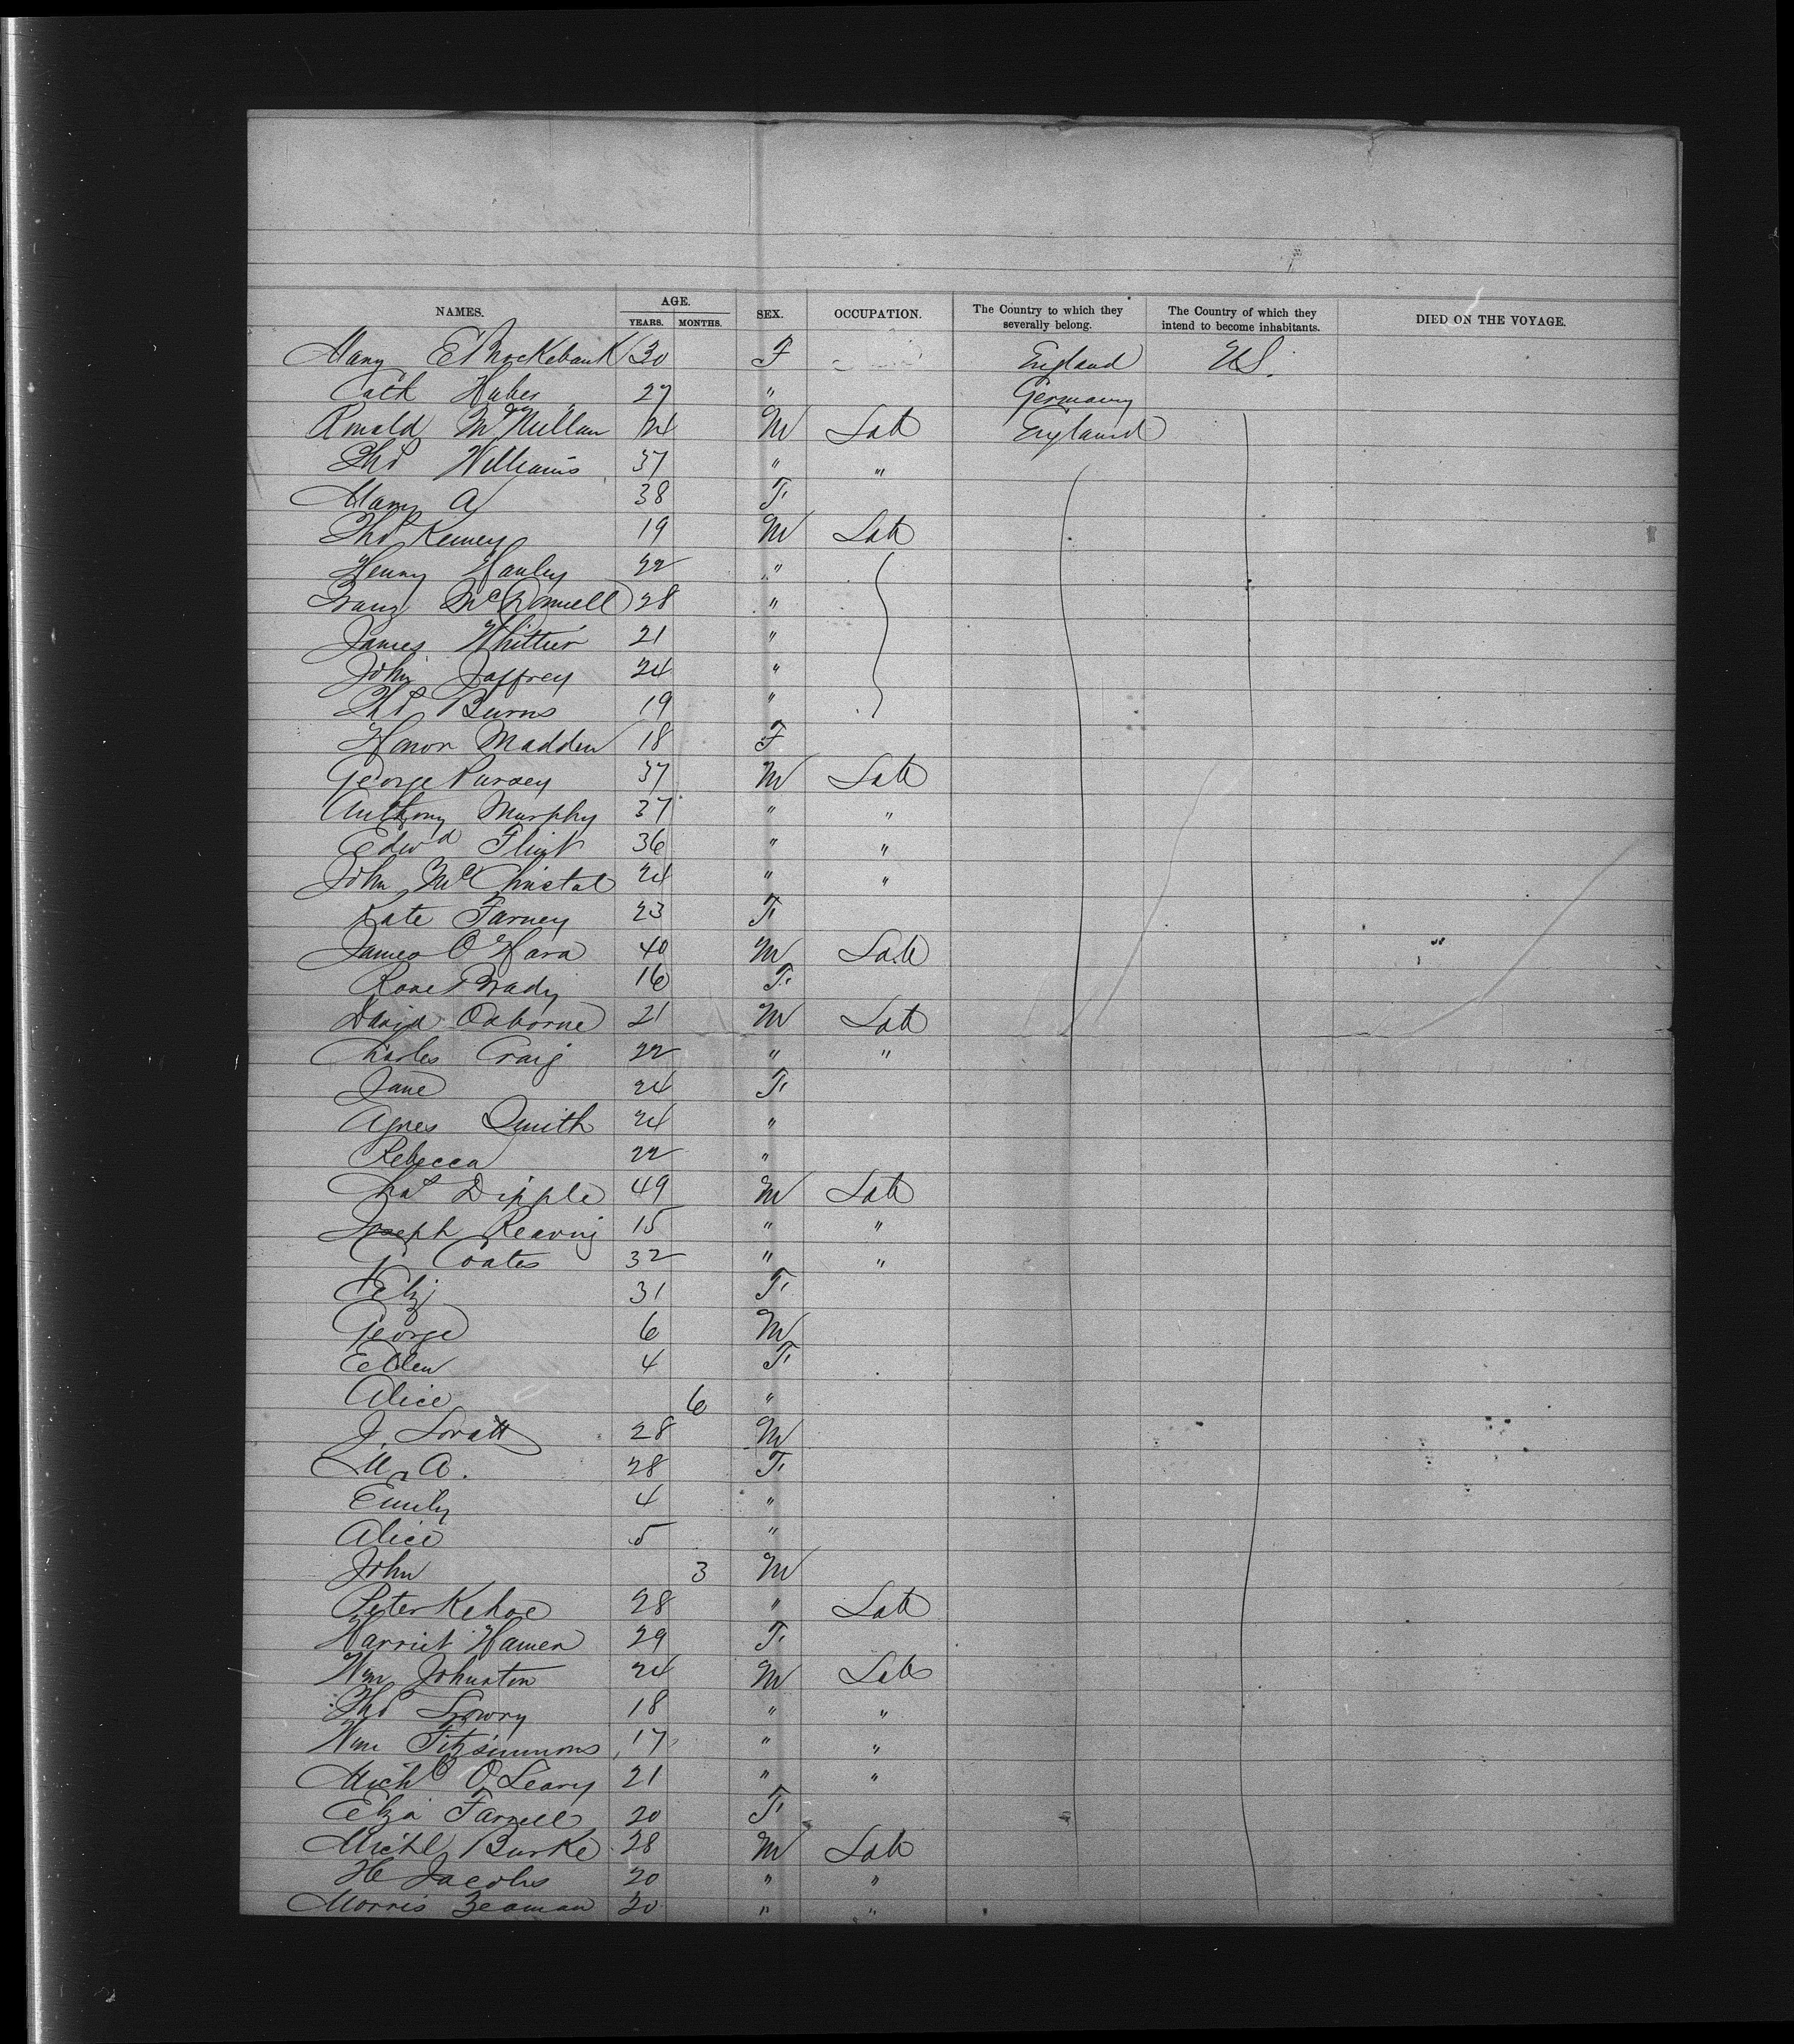 NAMES. AGE. SEX. OCCUPATION. The Country to which they severally belong. The Country of which they intend to become inhabitants. DIED ON THE VOYAGE.
YEARS. MONTHS.
Mary E Brockebank 30 F England US.
Cath Huber 27 " Germany
Ronald McMullan 24 M Lab England
Thos Williams 37 " "
Mary A 38 F
Thos Kenney 19 M Lab
Henry Hanley 22 "
Franz McDonnell 28 "
James Whittier 21 "
John Jaffrey 24 "
Thos Burns 19 "
Honor Madden 18 F
George Pursey 37 M Lab
Anthony Murphy 37 " "
Edwd Flint 36 " "
John McChristal 24 " "
Kate Farney 23 F
James O'Hara 40 M Lab
Rose Brady 16 F
David Osborne 21 M Lab
Charles Craig 22 " "
Jane 24 F
Agnes Smith 24 "
Rebecca 22 "
Chas Dipple 49 M Lab
Joseph Reaving 15 " "
G Coates 32 " "
Eliz 31 F
George 6 M
Ellen 4 F
Alice 6 "
J. Lovatt 28 M
M. A. 28 F
Emily 4 "
Alice 5 "
John 3 M
Peter Kehoe 28 " Lab
Harriet Hamer 29 F
Wm Johnston 24 M Lab
Thos Lowry 18 " "
Wm Fitzsimmons 17 " "
Michl O'Leary 21 " "
Eliza Farrell 20 F
Michl Burke 28 M Lab
H Jacobs 20 " "
Morris Zeaman 20 " "